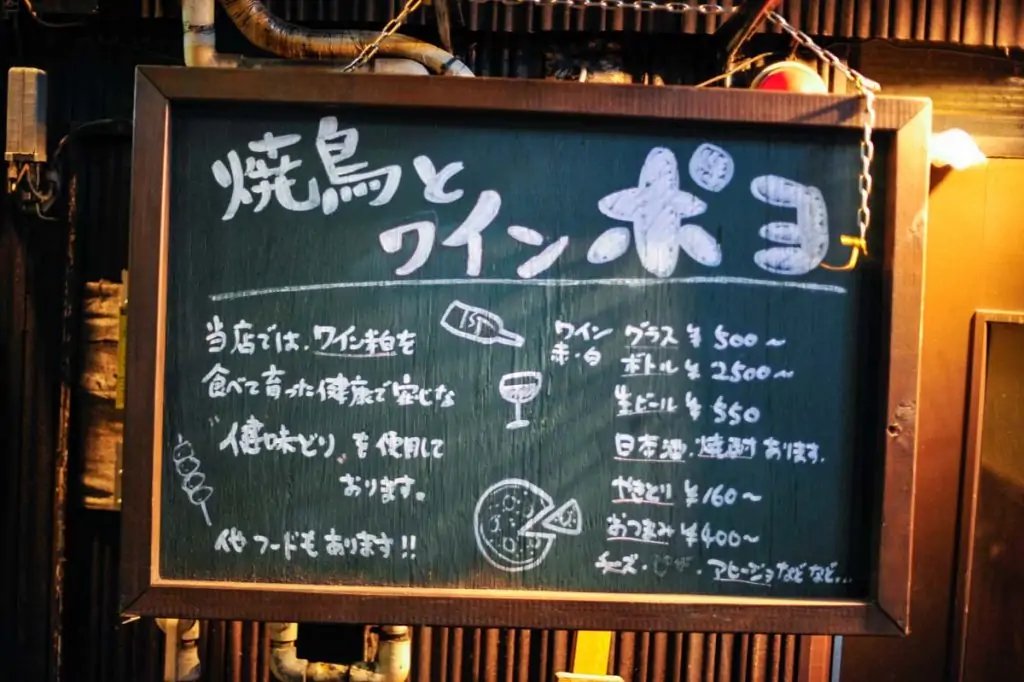 焼鳥と
ワイン ポヨ
当店では、ワイン粕を
食べて育った健康で安心な
"健味どり"を使用して
おります。
他フードもあります!!
1ST
ワイン 赤・白
グラス ¥500〜
ボトル ¥2500〜
生ビール ¥550
日本酒・焼酎あります。
やきとり ¥160〜
おつまみ ¥400〜
チーズ・ピザ・アヒージョなどなど...